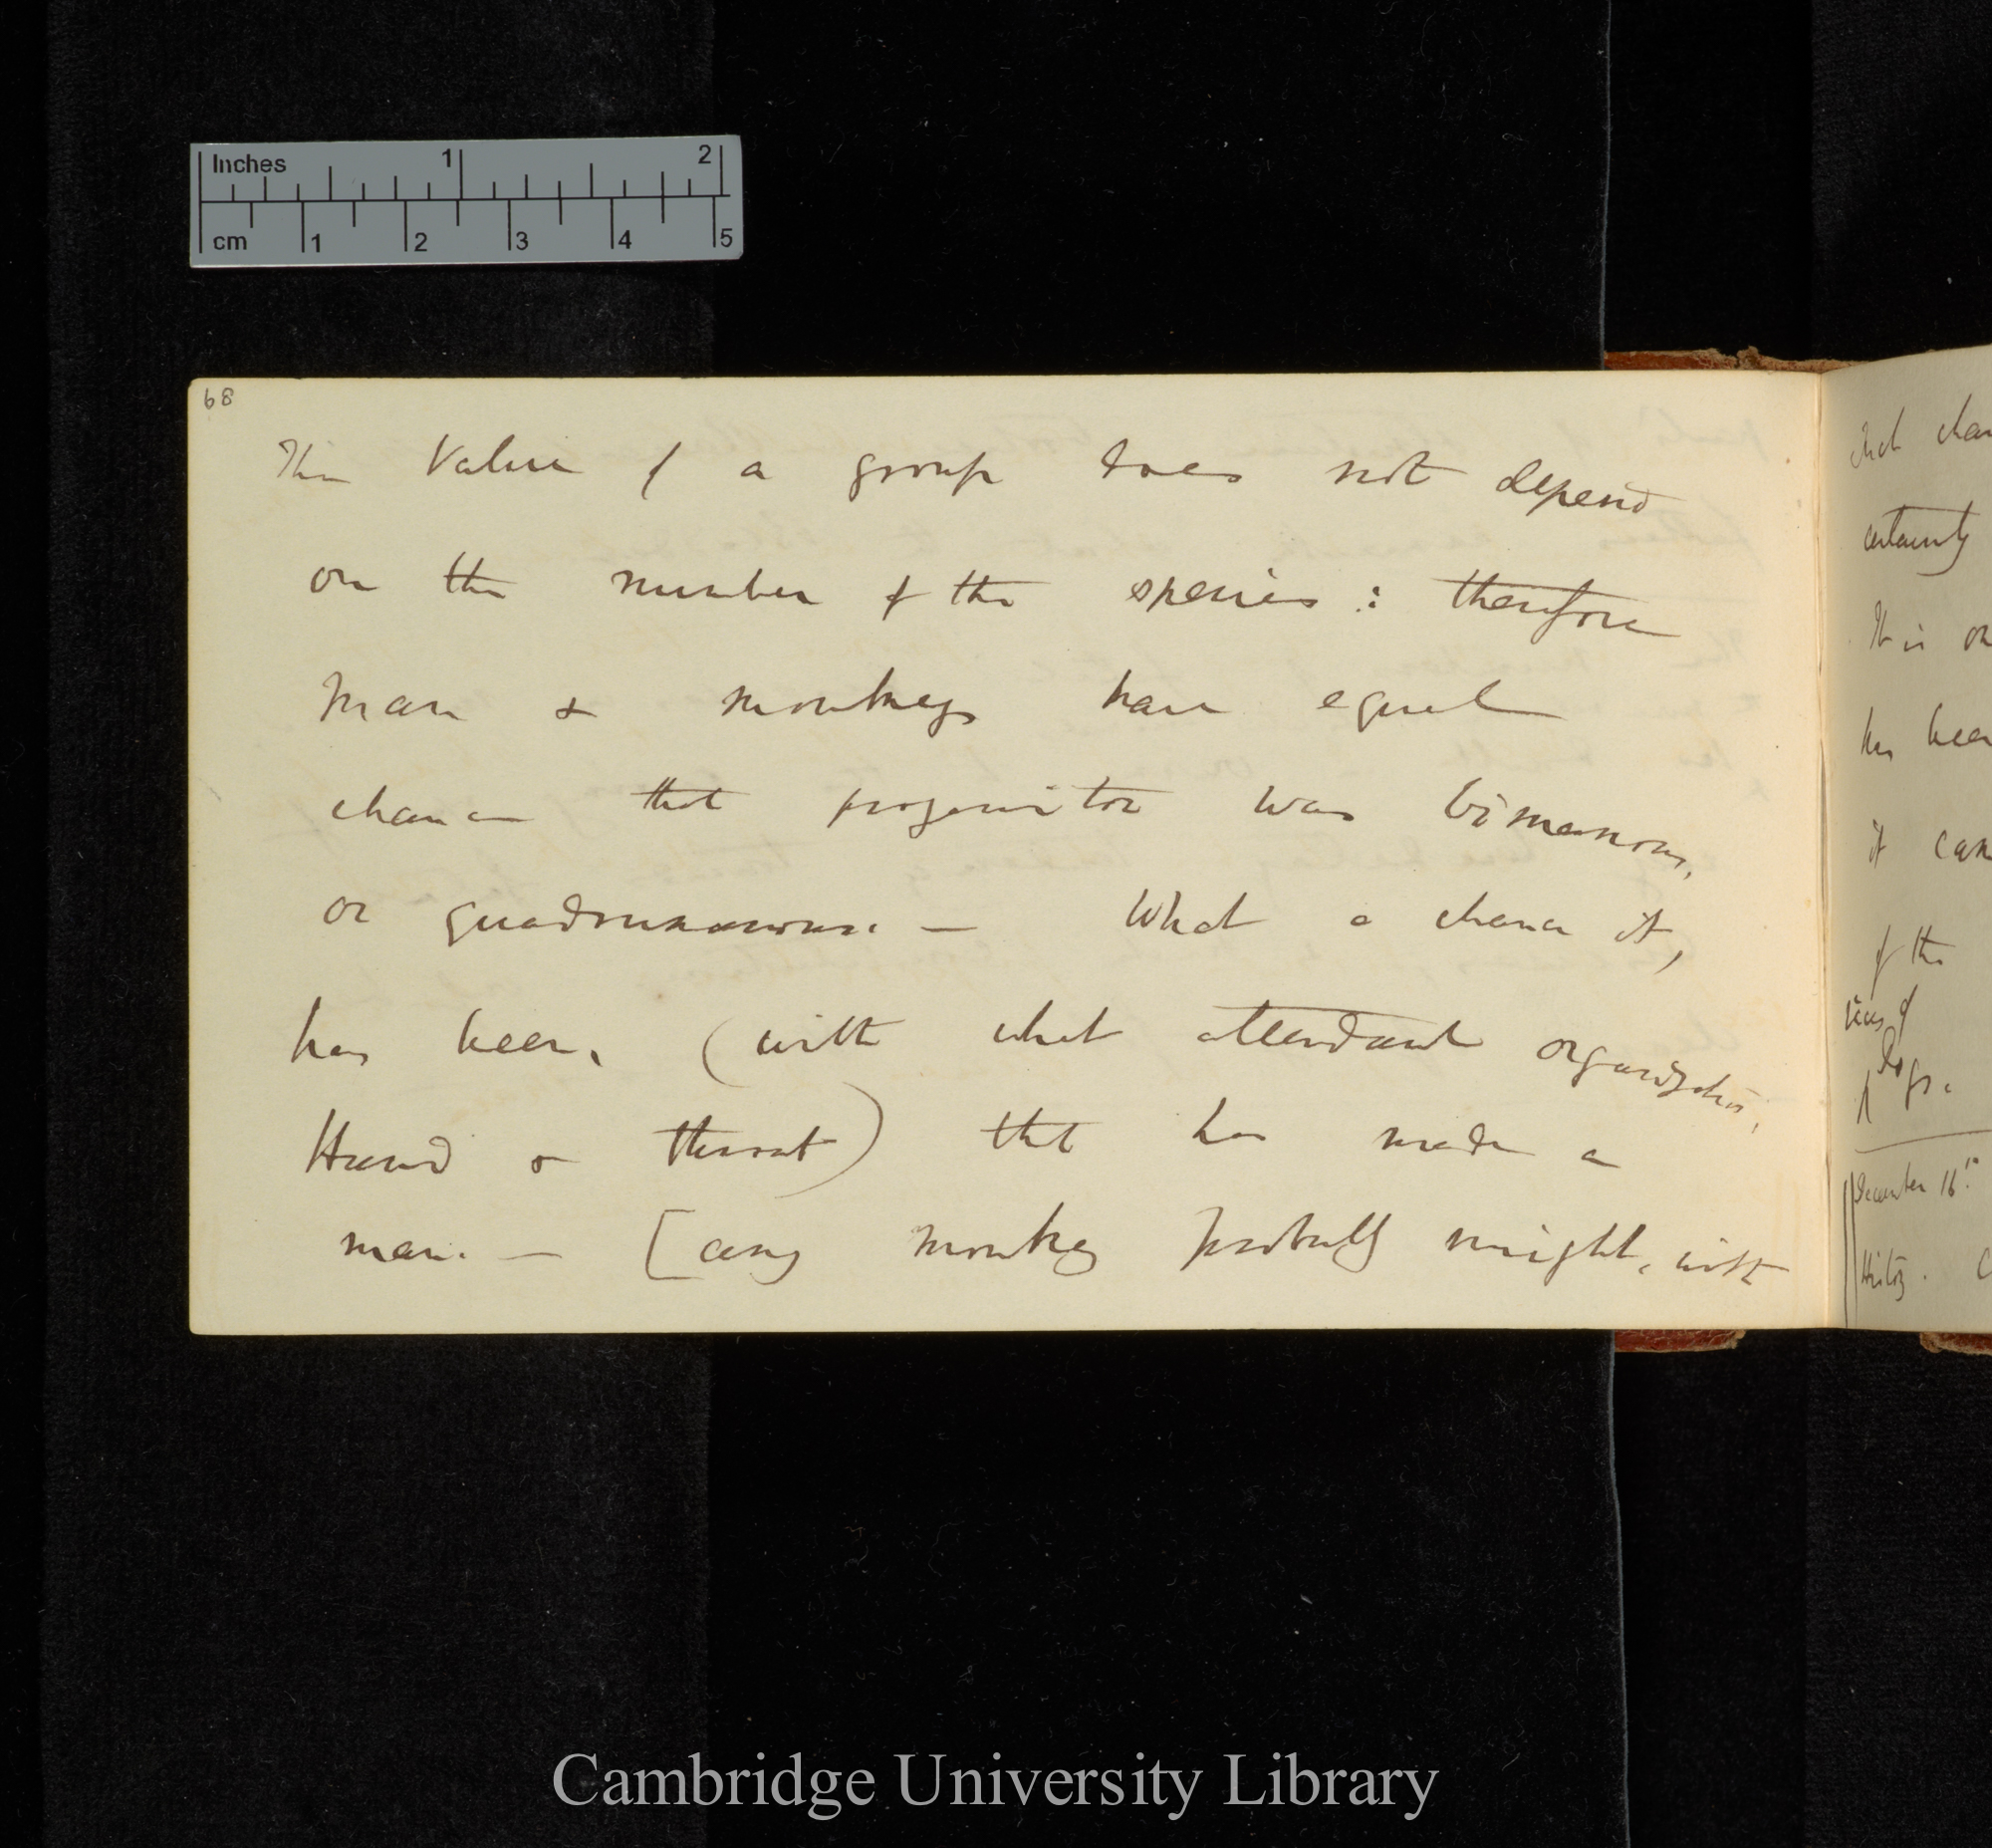 Inches 1 2
cm 1 2 3 4 5
68
The Value of a group does not depend
on the number of the species: therefore
Man & monkeys have equal
chance that progenitor was bimanous,
or quadrumanous. — What a chance it,
has been, (with what attendant organization,
Hand & throat) that has made a
man. — [any monkey probably might, with
such chan
certainty
It is on
has been
it can
of the
of
dogs.
December 16th
History. C
Cambridge University Library